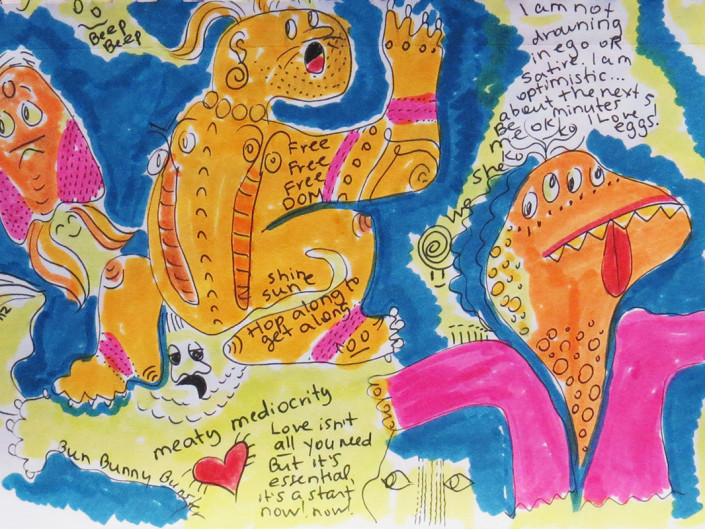 Beep
Beep
I am not
drawning
in ego or
satire. I am
optimistic...
about the next 5
minutes
Be OK to I Love
eggs!
Free
Free
Free
DOM
shine
sun
Hop along to
get along
meaty mediocrity
Bun Bunny
Love isn't
all you need
But it's
essential,
it's a start
now! now!